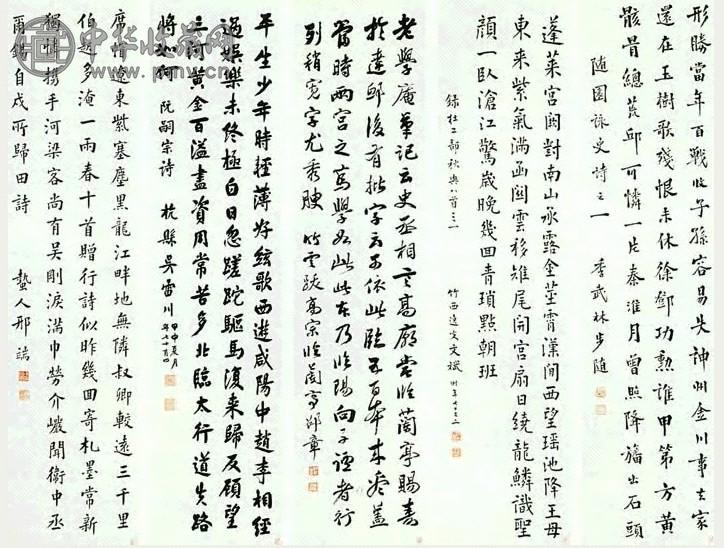 形勝當年百戰收子孫容易失神州金川事去家
還在玉樹歌殘恨未休徐鄧功勳誰甲第方黃
骸骨總荒邱可憐一片秦淮月曾照降旛出石頭
隨園詠史詩之一 季武林步隨
蓬萊宮闕對南山承露金莖霄漢間西望瑶池降王母
東來紫氣滿函關雲移雉尾開宮扇日繞龍鱗識聖
顏一臥滄江驚歲晚幾回青瑣點朝班
錄杜工部秋興八首之一 竹西逸史文
老學庵筆記云史丞相言高廟嘗臨蘭亭賜壽
於建邸後有批字云可依此臨五百本來看蓋
當時兩宮之篤學如此此本乃臨陽向子諲者行
列稍寬字尤秀腴 竹雲跋高宗臨蘭亭 邵章
平生少年時輕薄好絃歌西遊咸陽中趙李相經
過娛樂未終極白日忽蹉跎驅馬復來歸反顧望
三河黃金百溢盡資用常苦多北臨太行道失路
將如何 阮嗣宗詩 杭縣吳雷川 甲申夏月
年七十有四
席帽遼東紫塞塵黑龍江畔地無鄰叔卿較遠三千里
伯起多淹一兩春十首贈行詩似昨幾回寄札墨常新
獨憐攜手河梁客尚有吳剛淚滿巾 勞介巗聞衛中丞
爾錫自戍所歸田詩 蟄人邢端
中华收藏网